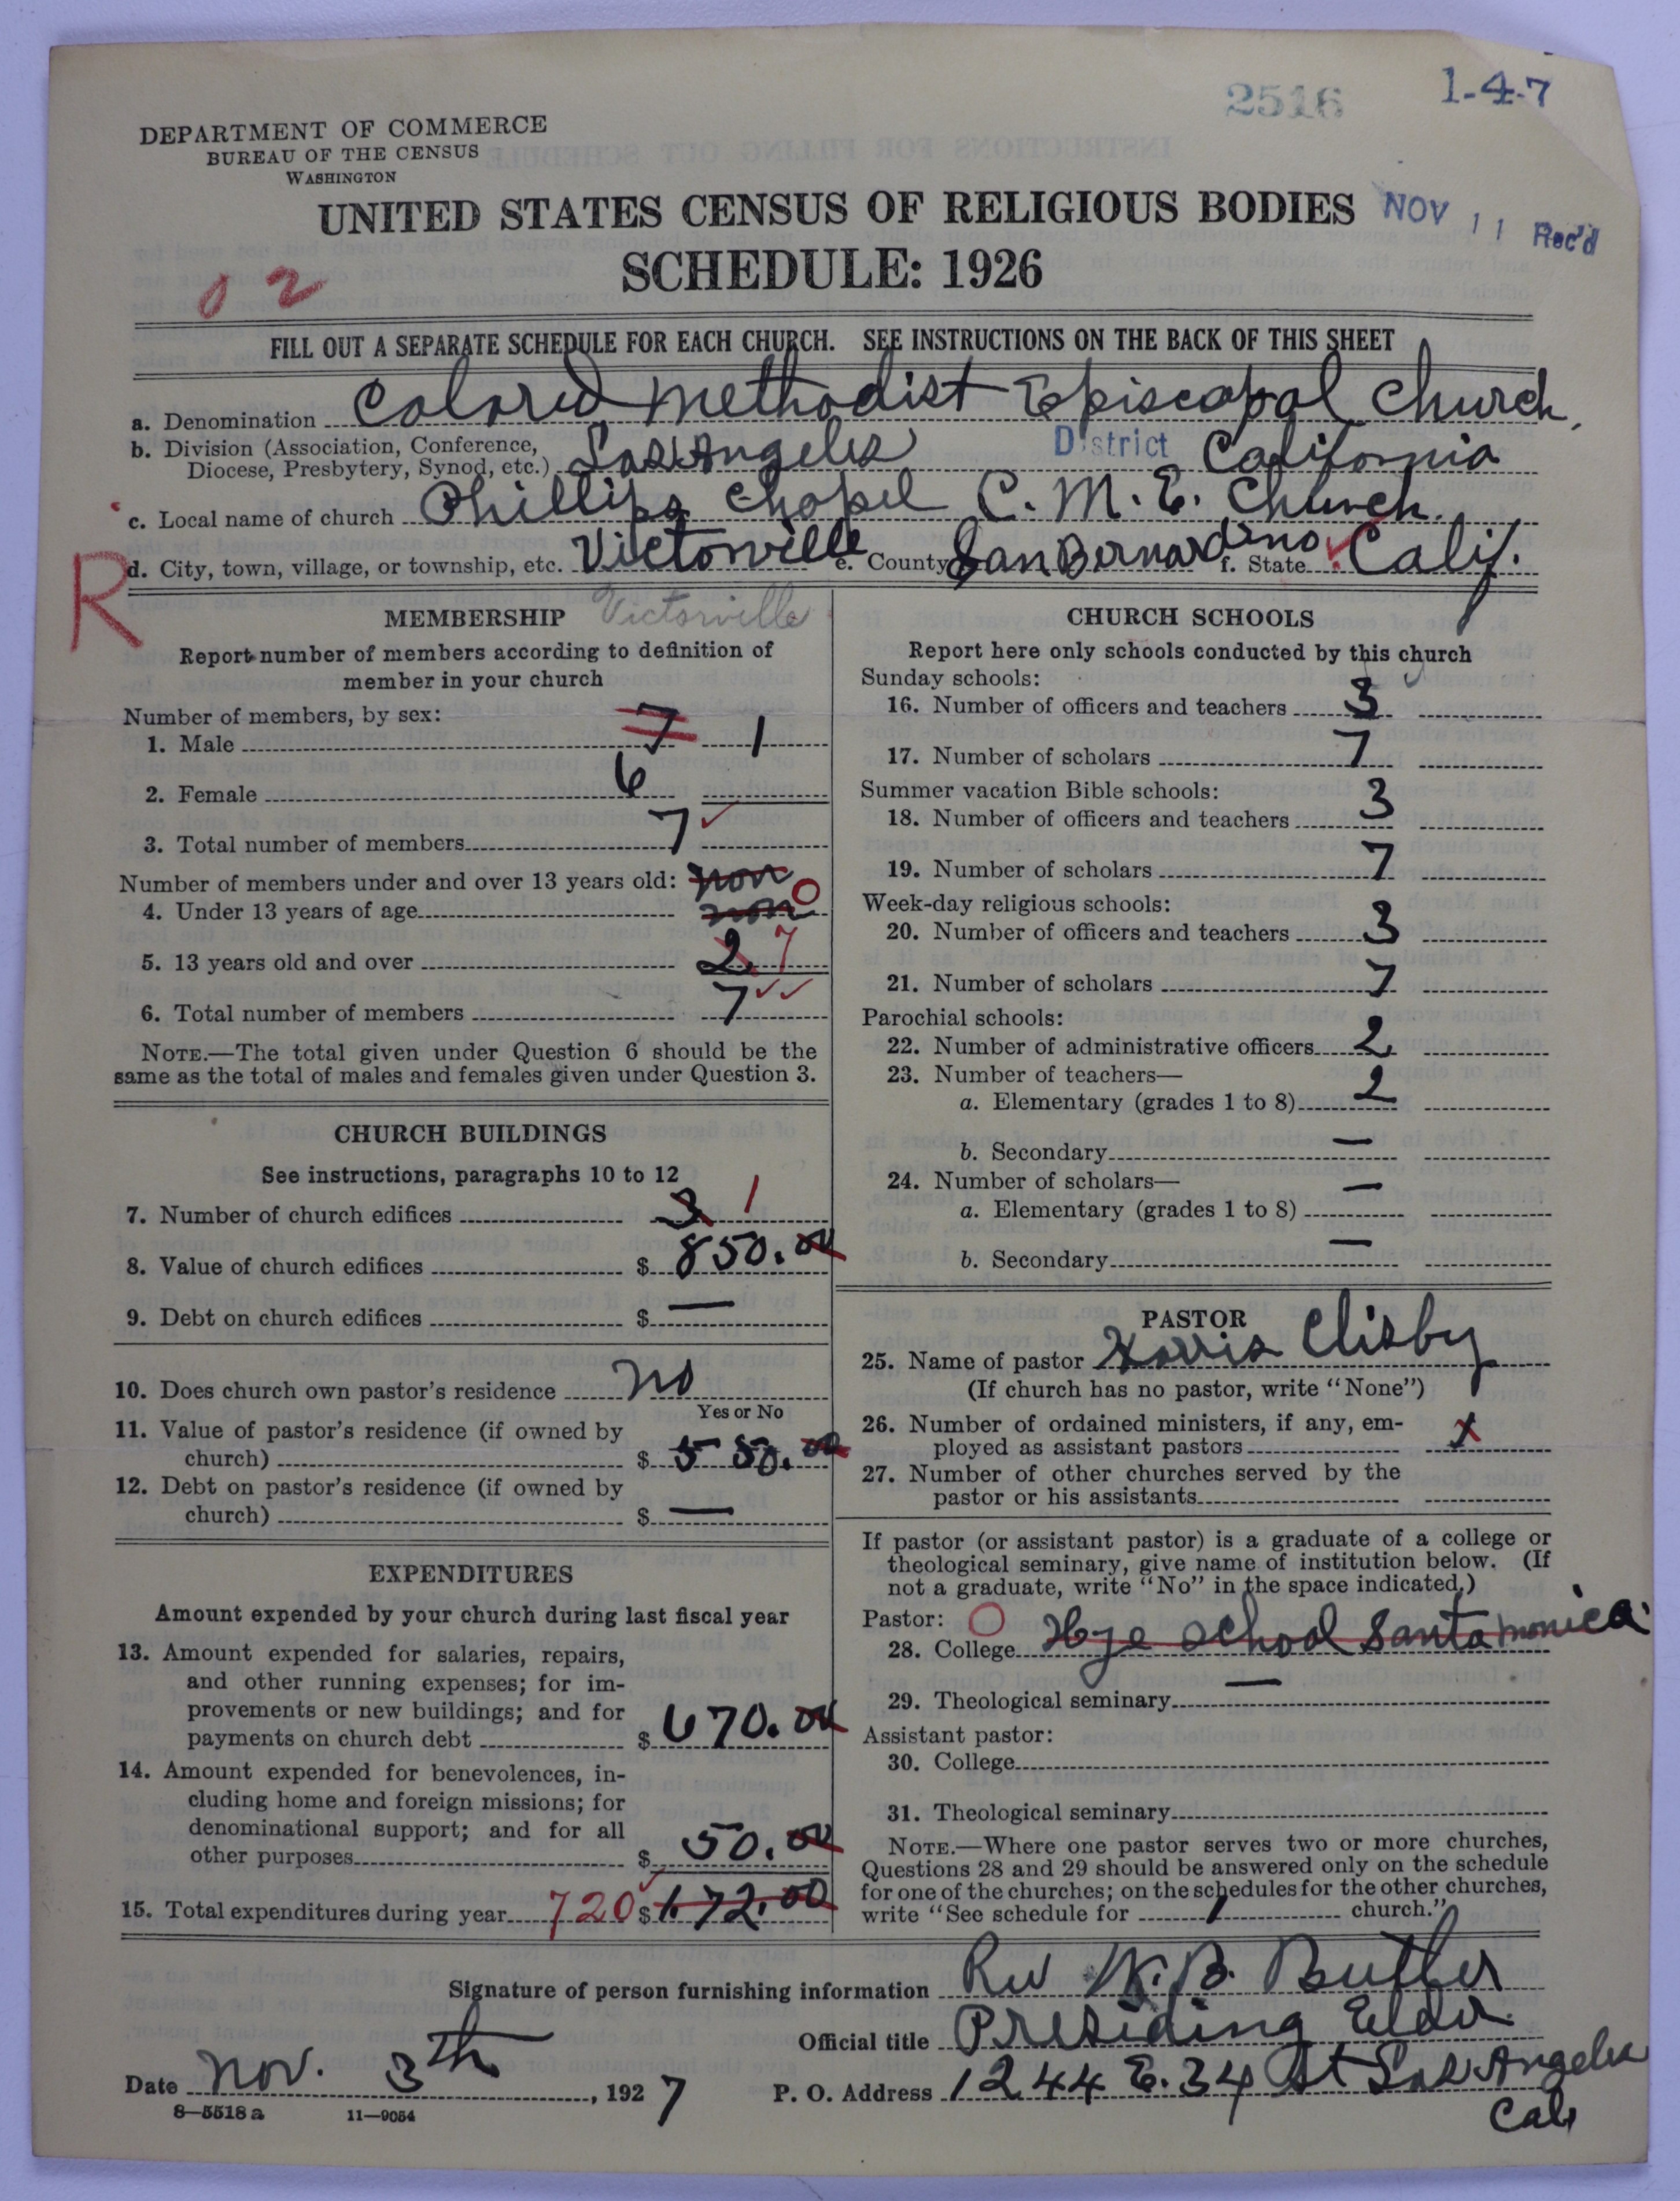 2516
1-4-7
DEPARTMENT OF COMMERCE
BUREAU OF THE CENSUS
WASHINGTON
UNITED STATES CENSUS OF RELIGIOUS BODIES
NOV 11 Rec'd
SCHEDULE: 1926
02
FILL OUT A SEPARATE SCHEDULE FOR EACH CHURCH. SEE INSTRUCTIONS ON THE BACK OF THIS SHEET
a. Denomination Colored Methodist Episcopal Church,
b. Division (Association, Conference,
Diocese, Presbytery, Synod, etc.) Los Angeles District California
c. Local name of church Phillips Chapel C. M. E. Church.
R
d. City, town, village, or township, etc. Victorville e. County San Bernardino f. State Calif.
MEMBERSHIP Victorville
Report number of members according to definition of
member in your church
Number of members, by sex:
1. Male 7 1
2. Female 6
3. Total number of members 7
Number of members under and over 13 years old: non
4. Under 13 years of age non 0
5. 13 years old and over 2 7
6. Total number of members 7
NOTE.—The total given under Question 6 should be the
same as the total of males and females given under Question 3.
CHURCH BUILDINGS
See instructions, paragraphs 10 to 12
7. Number of church edifices 3 1
8. Value of church edifices $ 850.00
9. Debt on church edifices $ —
10. Does church own pastor's residence no
Yes or No
11. Value of pastor's residence (if owned by
church) $ 550.00
12. Debt on pastor's residence (if owned by
church) $ —
EXPENDITURES
Amount expended by your church during last fiscal year
13. Amount expended for salaries, repairs,
and other running expenses; for im-
provements or new buildings; and for
payments on church debt $ 670.00
14. Amount expended for benevolences, in-
cluding home and foreign missions; for
denominational support; and for all
other purposes $ 50.00
15. Total expenditures during year 720 $ 172.00
CHURCH SCHOOLS
Report here only schools conducted by this church
Sunday schools:
16. Number of officers and teachers 3
17. Number of scholars 7
Summer vacation Bible schools:
18. Number of officers and teachers 3
19. Number of scholars 7
Week-day religious schools:
20. Number of officers and teachers 3
21. Number of scholars 7
Parochial schools:
22. Number of administrative officers 2
23. Number of teachers—
a. Elementary (grades 1 to 8) 2
b. Secondary —
24. Number of scholars—
a. Elementary (grades 1 to 8) —
b. Secondary —
PASTOR
25. Name of pastor Clisby
(If church has no pastor, write "None")
26. Number of ordained ministers, if any, em-
ployed as assistant pastors
27. Number of other churches served by the
pastor or his assistants
If pastor (or assistant pastor) is a graduate of a college or
theological seminary, give name of institution below. (If
not a graduate, write "No" in the space indicated.)
Pastor: O
28. College Hye school Santa monica
29. Theological seminary —
Assistant pastor:
30. College
31. Theological seminary
NOTE.—Where one pastor serves two or more churches,
Questions 28 and 29 should be answered only on the schedule
for one of the churches; on the schedules for the other churches,
write "See schedule for 1 church."
Signature of person furnishing information Rev W. B. Butler
Official title Presiding Elder
Date Nov. 3th, 1927 P. O. Address 1244 E. 34 St Los Angeles
Cal
8—5518 a 11—9054